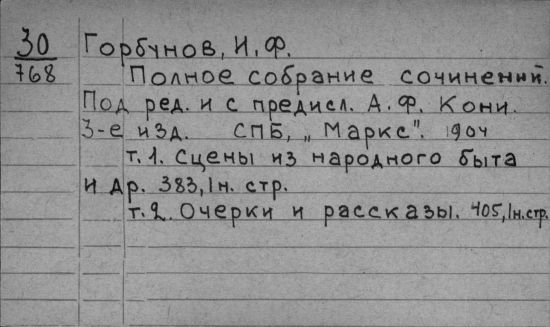 30 Горбунов, И. Ф.
768 Полное собрание сочинений.
Под ред. и с предисл. А. Ф. Кони.
3-е изд. СПБ, „Маркс". 1904
т. 1. Сцены из народного быта
и др. 383, 1н. стр.
т. 2. Очерки и рассказы. 405, 1н. стр.